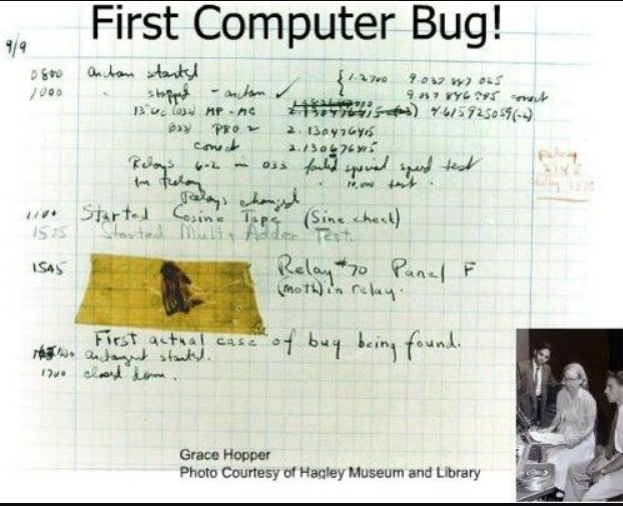 First Computer Bug!
9/9
0800 antan started
1000 " stopped - antan ✓ { 1.2700 9.037 847 025
9.037 846 995 correct
13" uc (032) MP - MC 2.130476415 (-3) 4.615925059(-2)
(033) PRO 2 2.130476415
correct 2.130676415
Relays 6-2 in 033 failed special speed test
In Relay " 10,000 test .
Relay
Relays changed
1100 Started Cosine Tape (Sine check)
1525 Started Multi Adder Test.
1545 Relay #70 Panel F
(moth) in relay.
First actual case of bug being found.
antangent started.
1700 closed down.
Grace Hopper
Photo Courtesy of Hagley Museum and Library